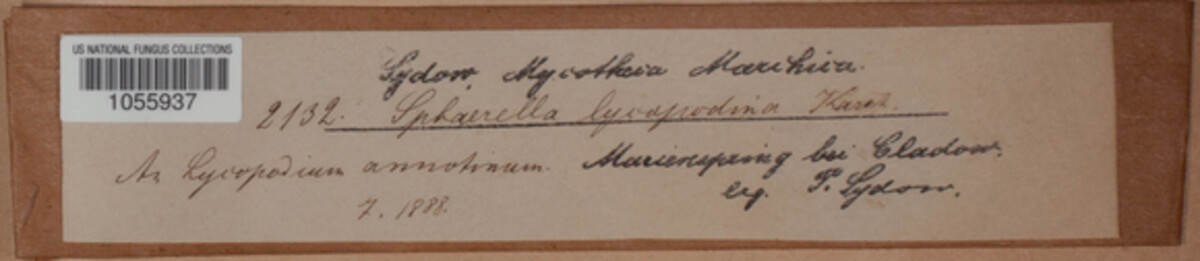 US NATIONAL FUNGUS COLLECTIONS
1055937
Sydow, Mycotheca Marchica.
2132. Sphaerella lycopodina Karst.
An Lycopodium annotinum. Marienspring bei Cladow.
7. 1888. leg. P. Sydow.